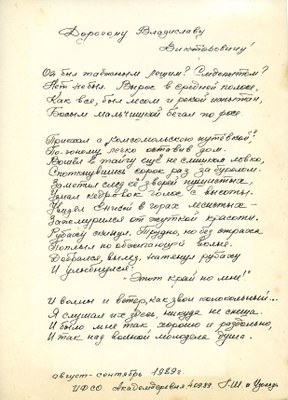 Дорогому Владиславу
Викторовичу!
Он был таёжным лешим? Следопытом?
Нет не был. Вырос в средней полосе,
Как все, был лесом и рекой испытан,
Босым мальчишкой бегал по росе
Приехал с "Комсомольскою путёвкой",
По-юному легко оставив дом.
Вошёл в тайгу ещё не слишком ловко,
Споткнувшись сорок раз за буреломом.
Заметил след её зверей пушистых,
Узнал кедровок голос с высоты.
Увидел Енисей в горах лесистых –
Зажмурился от жуткой красоты.
Рубаху скинул. Трудно, но без страха
Поплыл по обжигающей волне.
Добрался, вылез, натянул рубаху
И улыбнулся:
– "Этот край по мне!"
И волны и ветер, как звон колокольный...
Я слушал их здесь, никуда не спеша.
И было мне так хорошо и раздольно,
И так над волной молодела душа.
август-сентябрь 1989г.